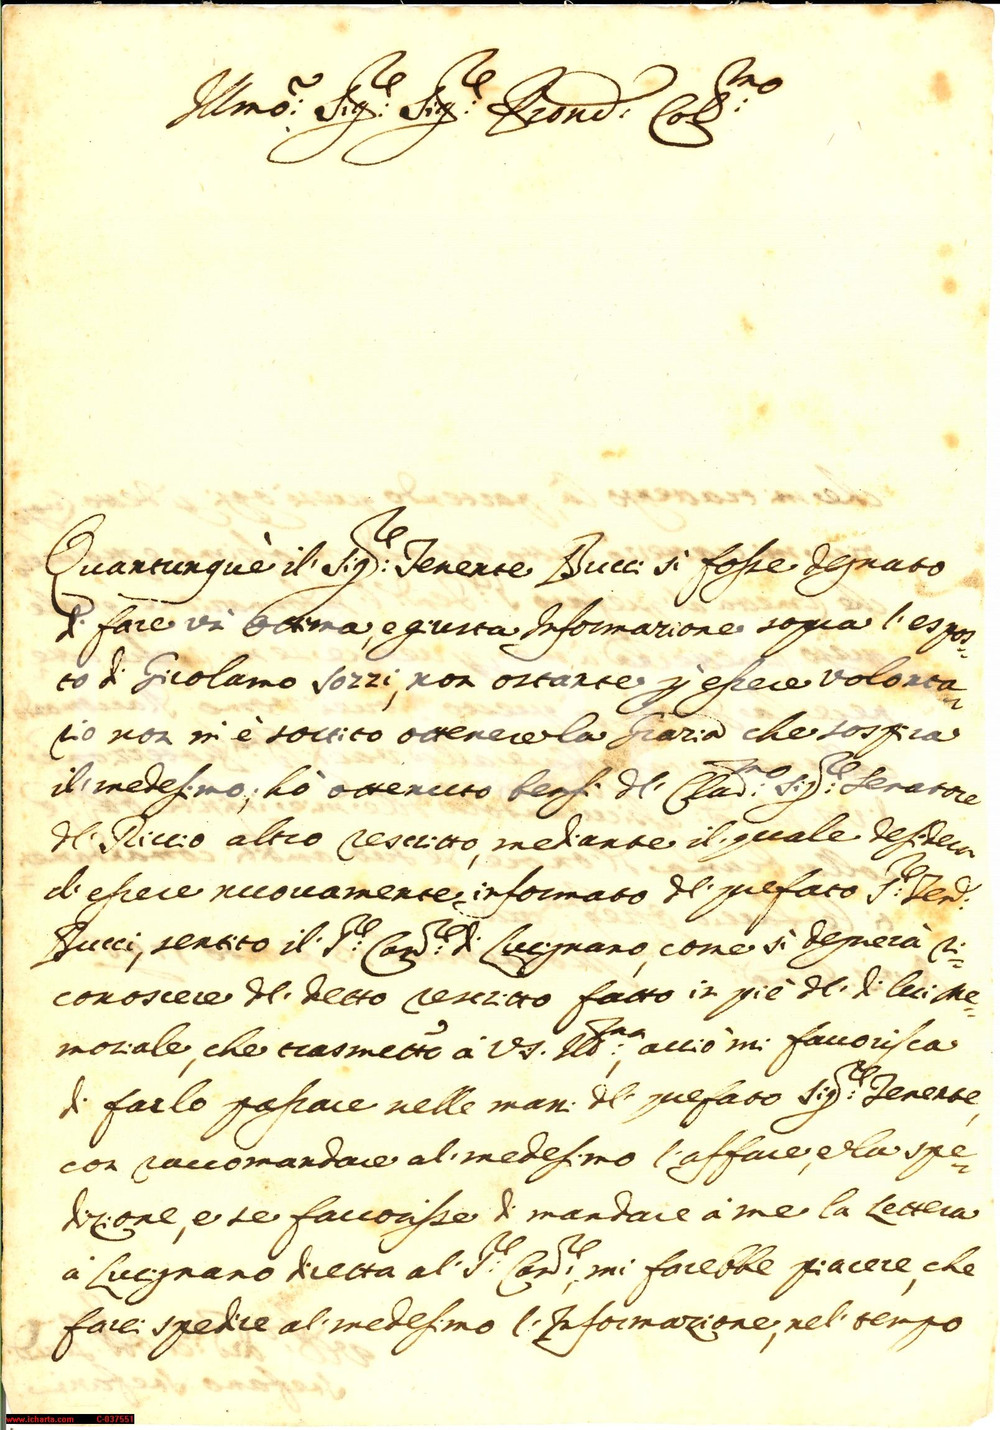 Illmo: Sig:re Sig:re Prond: Col:mo
Quantunque il Sig:re Tenente Bucci si fosse degnato
di fare un ottima, e giusta Informazione sopra l'espos=
to di Girolamo Sozzi, non ostante p essere volonta=
rio non mi è sortito ottenere la Grazia che sospira
il medesimo; hò ottenuto bensi dl' Clar:mo Sig:re Senatore
dl' Riccio altro rescritto, mediante il quale desidera
d'essere nuovamente informato dl' prefato S:re Ten:
Bucci, sentito il S:re Can:re di Lucignano, come si degnerà ri=
conoscere dl' detto rescritto fatto in piè dl' di lui me=
moriale, che trasmetto à VS. Ill:ma, acciò mi favorisca
di farlo passare nelle mani dl' prefato Sig:re Tenente,
con raccomandare al medesimo l'affare, e la spe=
dizione, e se favorisse di mandare à me la Lettera
à Lucignano diretta al S:re Can:re, mi farebbe piacere, che
farei spedire al medesimo l'Informazione, nel tempo
www.icharta.com C-037551